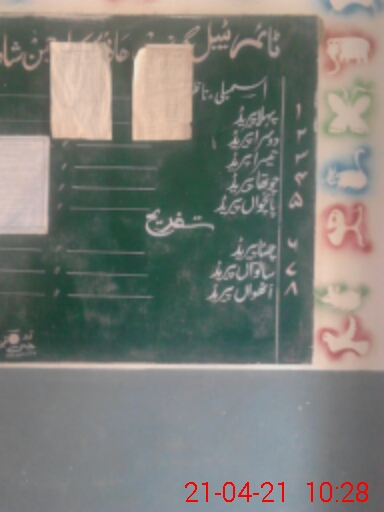 ٹائمر ٹیبل
اسمبلی، نا
۱ پہلا پیریڈ
۲ دوسرا پیریڈ
۳ تیسرا پیریڈ
۴ چوتھا پیریڈ
۵ پانچواں پیریڈ
تفریح
۶ چھٹا پیریڈ
۷ ساتواں پیریڈ
۸ آٹھواں پیریڈ
21-04-21 10:28